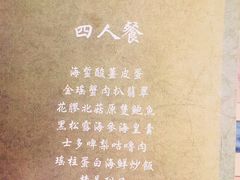 四人餐
海蜇酸薑皮蛋
金瑤蟹肉扒翡翠
花膠北菇原隻鮑魚
黑松露海參海皇羹
士多啤梨咕嚕肉
瑤柱蛋白海鮮炒飯